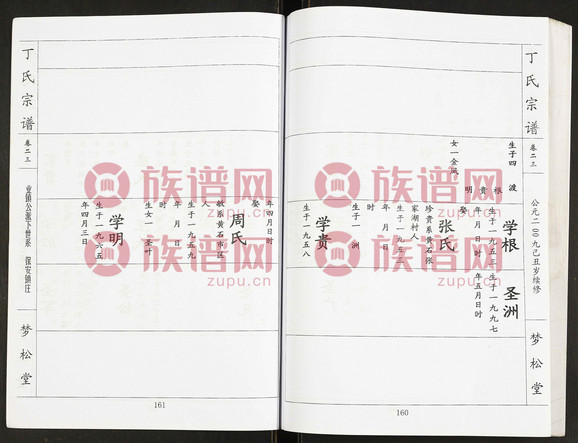 丁氏宗谱
卷二三
公元二〇〇九己丑岁续修
梦松堂
生子四 波
根
贵
明
女一金凤
圣洲
生于一九九七
年五月日时
学根
生于一九五三
年 月 日 时
娶
张氏
珍贵系黄石张
家湖村人
生于一九五三
年 月 日
时
生子一 洲
学贵
生于一九五八
160
年四月日时
娶
周氏
敏系黄石市区
人
生于一九五九
年 月 日
时
生女一 圣叶
学明
生于一九六五
年四月三日
丁氏宗谱
卷二三
业镇公派下世系 保安镇庄
梦松堂
161
族谱网
zupu.cn
族谱网
zupu.cn
族谱网
zupu.cn
族谱网
zupu.cn